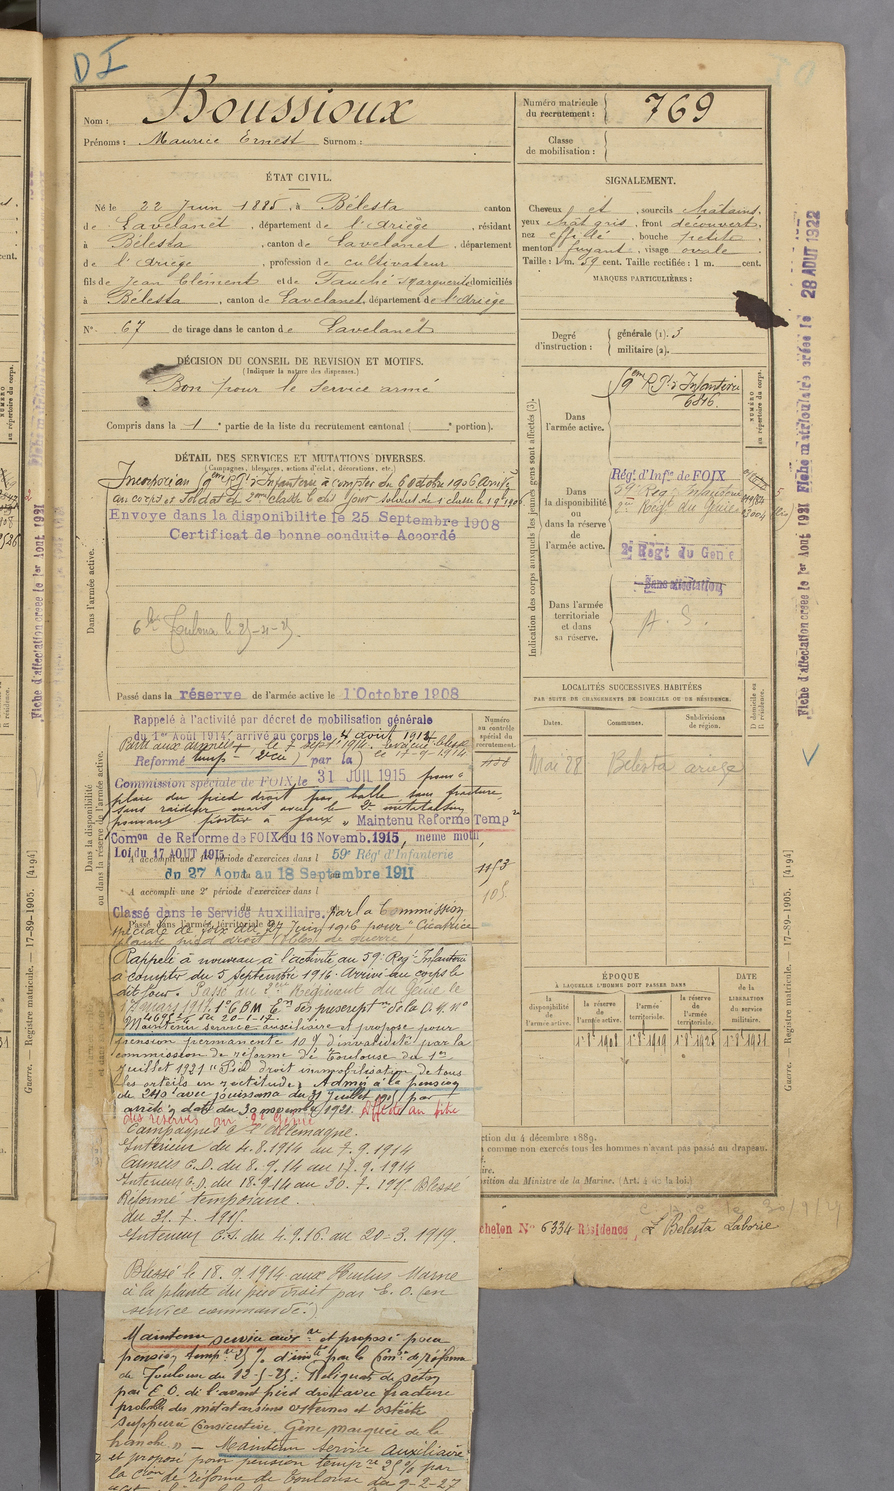 D I
Nom : Boussioux
Prénoms : Maurice Ernest Surnom :
ÉTAT CIVIL.
Né le 22 Juin 1885, à Bélesta canton
de Lavelanet, département de l'Ariège, résidant
à Bélesta, canton de Lavelanet, département
de l'Ariège, profession de cultivateur
fils de Jean Clément et de Fauché Marguerite domiciliés
à Bélesta, canton de Lavelanet, département de l'Ariège
N° 67 de tirage dans le canton de Lavelanet
DÉCISION DU CONSEIL DE REVISION ET MOTIFS.
(Indiquer la nature des dispenses.)
Bon pour le service armé
Compris dans la 1 e partie de la liste du recrutement cantonal ( e portion).
DÉTAIL DES SERVICES ET MUTATIONS DIVERSES.
(Campagnes, blessures, actions d'éclat, décorations, etc.)
Incorporé au 59ème Rgt d'Infanterie à compter du 6 octobre 1906 Arrivé
au corps et soldat de 2ème classe le dit jour soldat de 1 classe le
Envoye dans la disponibilite le 25 Septembre 1908
Certificat de bonne conduite Accordé
Dans l'armée active.
Toulouse le
Passé dans la réserve de l'armée active le 1 Octobre 1908
Numéro matricule
du recrutement : 769
Classe
de mobilisation :
SIGNALEMENT.
Cheveux et , sourcils châtains,
yeux chât gris, front découvert,
nez effilé, bouche petite,
menton fuyant, visage ovale.
Taille : 1 m. 59 cent. Taille rectifiée : 1 m. cent.
MARQUES PARTICULIÈRES :
Degré
d'instruction :
générale (1). 3
militaire (2).
Indication des corps auxquels les jeunes gens sont affectés (3).
NUMÉRO
au répertoire du corps.
Dans
l'armée active.
59ème Rgt d'Infanterie
6846.
Dans
la disponibilité
ou
dans la réserve
de
l'armée active.
Rég. d'Infie de FOIX
59e Reg Infanterie
2me Régt du Génie
2e Régt du Genie
Sans affectation
Dans l'armée
territoriale
et dans
sa réserve.
A. S.
LOCALITÉS SUCCESSIVES HABITÉES
PAR SUITE DE CHANGEMENTS DE DOMICILE OU DE RÉSIDENCE.
Dates. Communes. Subdivisions
de région.
D domicile ou
R résidence.
Mai 28 Bélesta ariege
Dans la disponibilité
ou dans la réserve de l'armée active.
Numéro
au contrôle
spécial du
recrutement.
Rappelé à l'activité par décret de mobilisation générale
du 1er Août 1914, arrivé au corps le 4 août 1914
Parti aux armées le 7 septbre 1914. Évacué blessé
le 17-9-1914
Réformé temp par la
Commission spéciale de FOIX, le 31 JUIL 1915 pour "
plaie du pied droit par balle sans fracture,
sans raideur mais avec le 2e métatarsien
pouvant porter à faux " Maintenu Reforme Temp re
Comon de Reforme de FOIX du 16 Novemb. 1915, meme motif
Loi du 17 AOUT 1915
A accompli une 1re période d'exercices dans l 59e Rég' d'Infanterie
du 27 Août au 18 Septembre 1911
1153
A accompli une 2e période d'exercices dans l
105.
Classé dans le Service Auxiliaire. Par la Commission
spéciale de Foix du 24 Juin 1916 pour "Cicatrice
Passé dans l'armée territoriale le
plante pied droit. Bles de guerre"
Rappelé à nouveau à l'activité au 59e Reg' Infanterie
à compter du 5 septembre 1916. Arrivé au corps le
dit jour. Passé au 2me Régiment du Génie le
17 mars 1917
Maintenu service auxiliaire et proposé pour
pension permanente 10 % d'invalidité par la
commission de réforme de Toulouse du 1er
Juillet 1921 "Pied droit immobilisation de tous
les orteils en rectitude, Admis à la pension
de 240f avec jouissance du 31 juillet 1915 par
arrêté en date du 30 novembre 1921. Affecté au titre
des réserves au 2e Génie
Campagnes c. l'Allemagne.
Intérieur du 4.8.1914 au 7.9.1914
Armées C.D. du 8.9.14 au 17.9.1914
Intérieur C.D. du 18.9.14 au 30.7.1915 Blessé
Réformé temporaire
du 31.7.1915.
Intérieur C.S. du 4.9.16. au 20-3.1919.
Blessé le 18.9.1914 aux Hurlus Marne
à la plante du pied droit par E.O. (en
service commandé.)
Maintenu service auxre et proposé pour
pension tempre 25 % d'invté par la Comon de réforme
de Toulouse du 12-5-25 : Reliquat de séton
par E.O. de l'avant pied droit avec fracture
probable des métatarsiens externes et ostéite
suppurée consécutive. Gêne marquée de la
— Maintenu service Auxiliaire
et proposé pour pension tempre 25 % par
la Con de réforme de Toulouse du 9-2-27
ÉPOQUE
À LAQUELLE L'HOMME DOIT PASSER DANS
la
disponibilité
de
l'armée active.
la réserve
de
l'armée active.
l'armée
territoriale.
la réserve
de
l'armée
territoriale.
DATE
de la
LIBÉRATION
du service
militaire.
1er 8bre 1908 1er 8bre 1919 1er 8bre 1925 1er 8bre 1931
ction du 4 décembre 1889.
comme non exercés tous les hommes n'ayant pas passé au drapeau.
sition du Ministre de la Marine. (Art. 4 de la loi.)
chelon N° 6334 Résidence, L Bélesta Laborie
Fiche d'affectation créée le 1er Aout 1921 Fiche matriculaire créée le 28 AOUT 1922
Guerre. — Registre matricule. — 17-89-1905. [4194]
Guerre. — Registre matricule. — 17-89-1905. [4194]
Fiche d'affectation créée le 1er Aout 1921